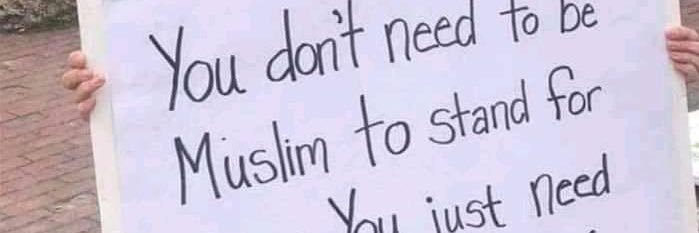 You don't need to be
Muslim to stand for
You just need